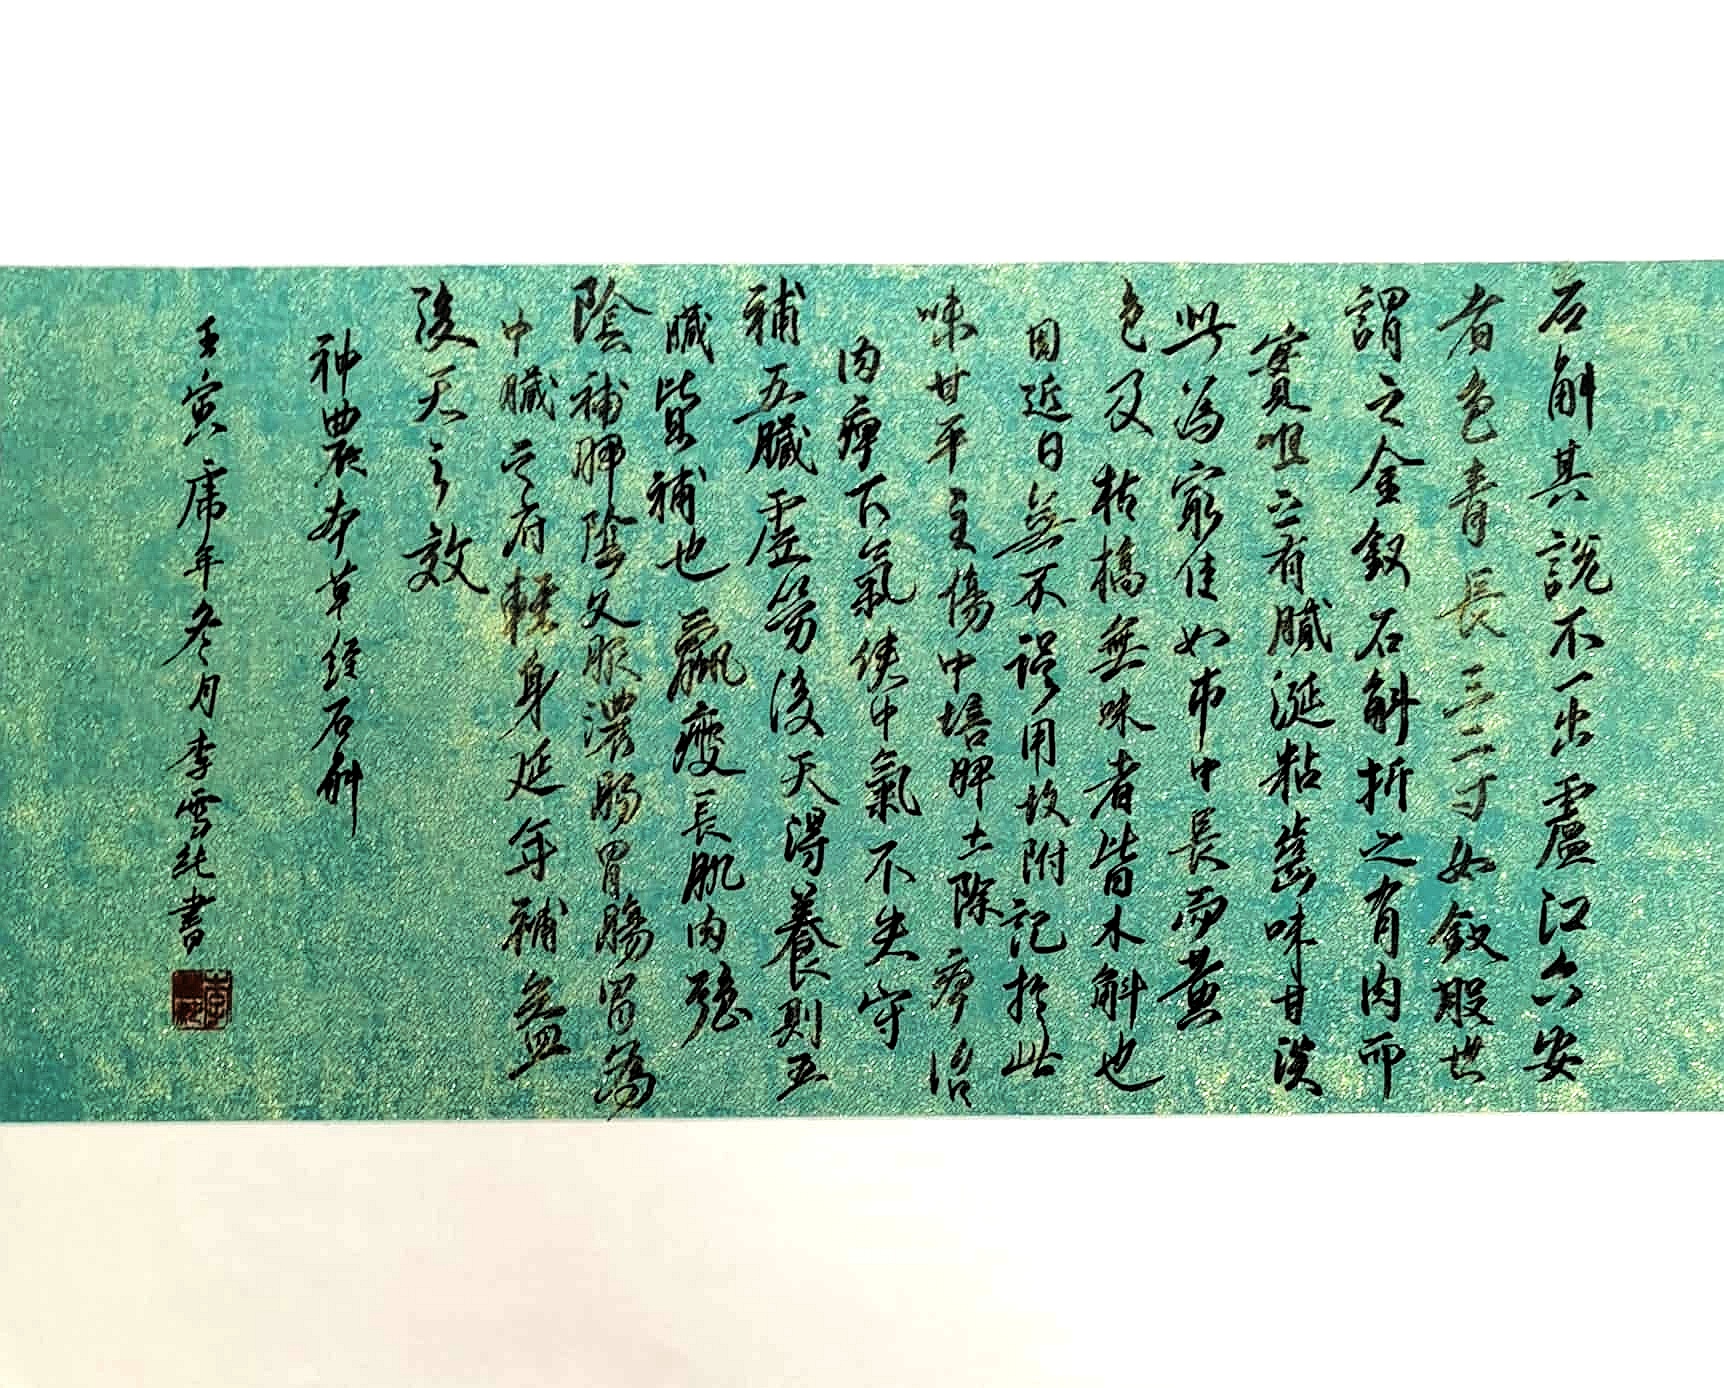 石斛其說不一出廬江六安
者色青長三二寸如釵股世
謂之金釵石斛折之有肉而
實咀之有膩涎粘齒味甘淡
此為最佳如市中長而黃
色及枯槁無味者皆木斛也
因近日無不誤用故附記於此
味甘平主傷中培脾土除痹治
肉痹下氣使中氣不失守
補五臟虛勞後天得養則五
臟皆補也羸瘦長肌肉強
陰補脾陰久服濃腸胃腸胃為
中臟之府輕身延年補益
後天之效
神農本草經石斛
壬寅虎年冬月李雪純書